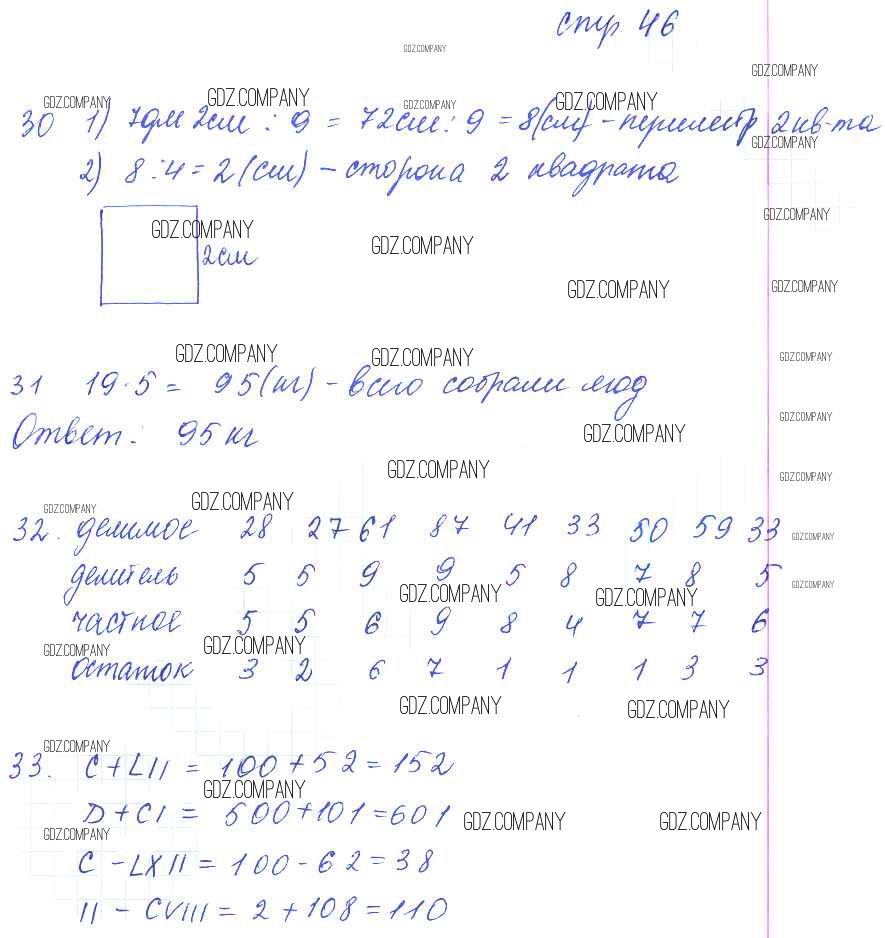 стр 46
30 1) 7дм 2см : 9 = 72см : 9 = 8(см) - периметр 2кв-та
2) 8 : 4 = 2 (см) - сторона 2 квадрата
2см
31 19 · 5 = 95(кг) - всего собрали ягод
Ответ: 95 кг
32. делимое 28 27 61 87 41 33 50 59 33
делитель 5 5 9 9 5 8 7 8 5
частное 5 5 6 9 8 4 7 7 6
остаток 3 2 6 7 1 1 1 3 3
33. C + LII = 100 + 52 = 152
D + CI = 500 + 101 = 601
C - LXII = 100 - 62 = 38
II - CVIII = 2 + 108 = 110
GDZ.COMPANY